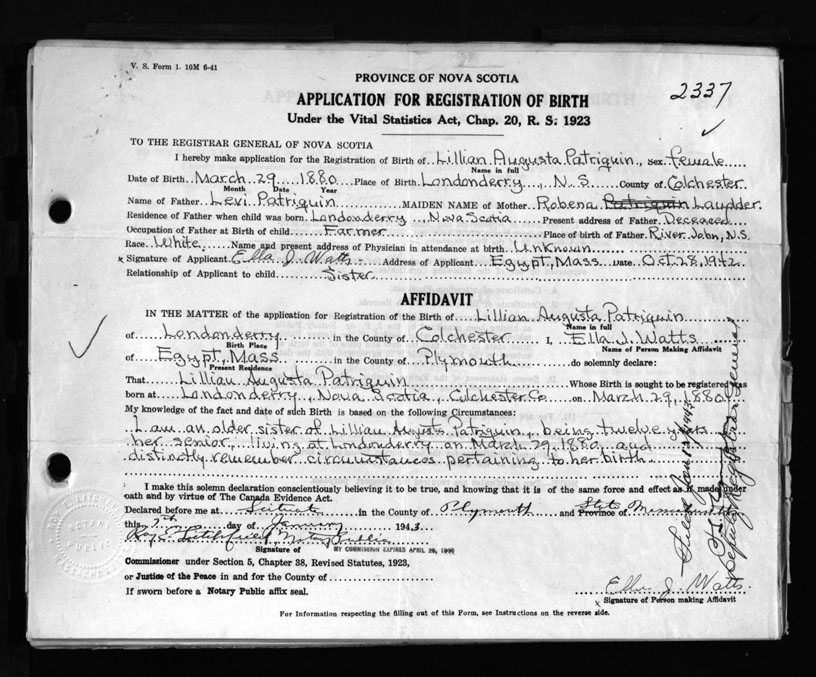 V. S. Form 1. 10M 6-41
PROVINCE OF NOVA SCOTIA
2337
APPLICATION FOR REGISTRATION OF BIRTH
Under the Vital Statistics Act, Chap. 20, R. S. 1923
TO THE REGISTRAR GENERAL OF NOVA SCOTIA
I hereby make application for the Registration of Birth of Lillian Augusta Patriquin, sex female
Name in full
Date of Birth March 29 1880 Place of Birth Londonderry, N. S County of Colchester
Month Date Year
Name of Father Levi Patriquin MAIDEN NAME of Mother Robena Patriquin Lauder
Residence of Father when child was born Londonderry, Nova Scotia Present address of Father Deceased
Occupation of Father at Birth of child Farmer Place of birth of Father River John, N.S.
Race White Name and present address of Physician in attendance at birth Unknown
x Signature of Applicant Ella J. Watts Address of Applicant Egypt, Mass Date Oct 28, 1942
Relationship of Applicant to child Sister
AFFIDAVIT
IN THE MATTER of the application for Registration of the Birth of Lillian Augusta Patriquin
Name in full
of Londonderry in the County of Colchester I, Ella J. Watts
Birth Place Name of Person Making Affidavit
of Egypt, Mass in the County of Plymouth do solemnly declare:
Present Residence
That Lillian Augusta Patriquin Whose Birth is sought to be registered was
born at Londonderry, Nova Scotia, Colchester Co on March 29, 1880
My knowledge of the fact and date of such Birth is based on the following Circumstances:
I am an older sister of Lillian Augusta Patriquin, being twelve years
her senior, living at Londonderry on March 29, 1880, and
distinctly remember circumstances pertaining to her birth
I make this solemn declaration conscientiously believing it to be true, and knowing that it is of the same force and effect as if made under
oath and by virtue of The Canada Evidence Act.
Declared before me at Scituate in the County of Plymouth and State Province of Massachusetts
this 7th day of January 1943
Notary Public
Signature of MY COMMISSION EXPIRES APRIL
Commissioner under Section 5, Chapter 38, Revised Statutes, 1923,
or Justice of the Peace in and for the County of
Ella J. Watts
If sworn before a Notary Public affix seal.
x Signature of Person making Affidavit
For Information respecting the filling out of this Form, see Instructions on the reverse side.
Filed Jan 12th 1943
Deputy Registrar General
NOTARY PUBLIC